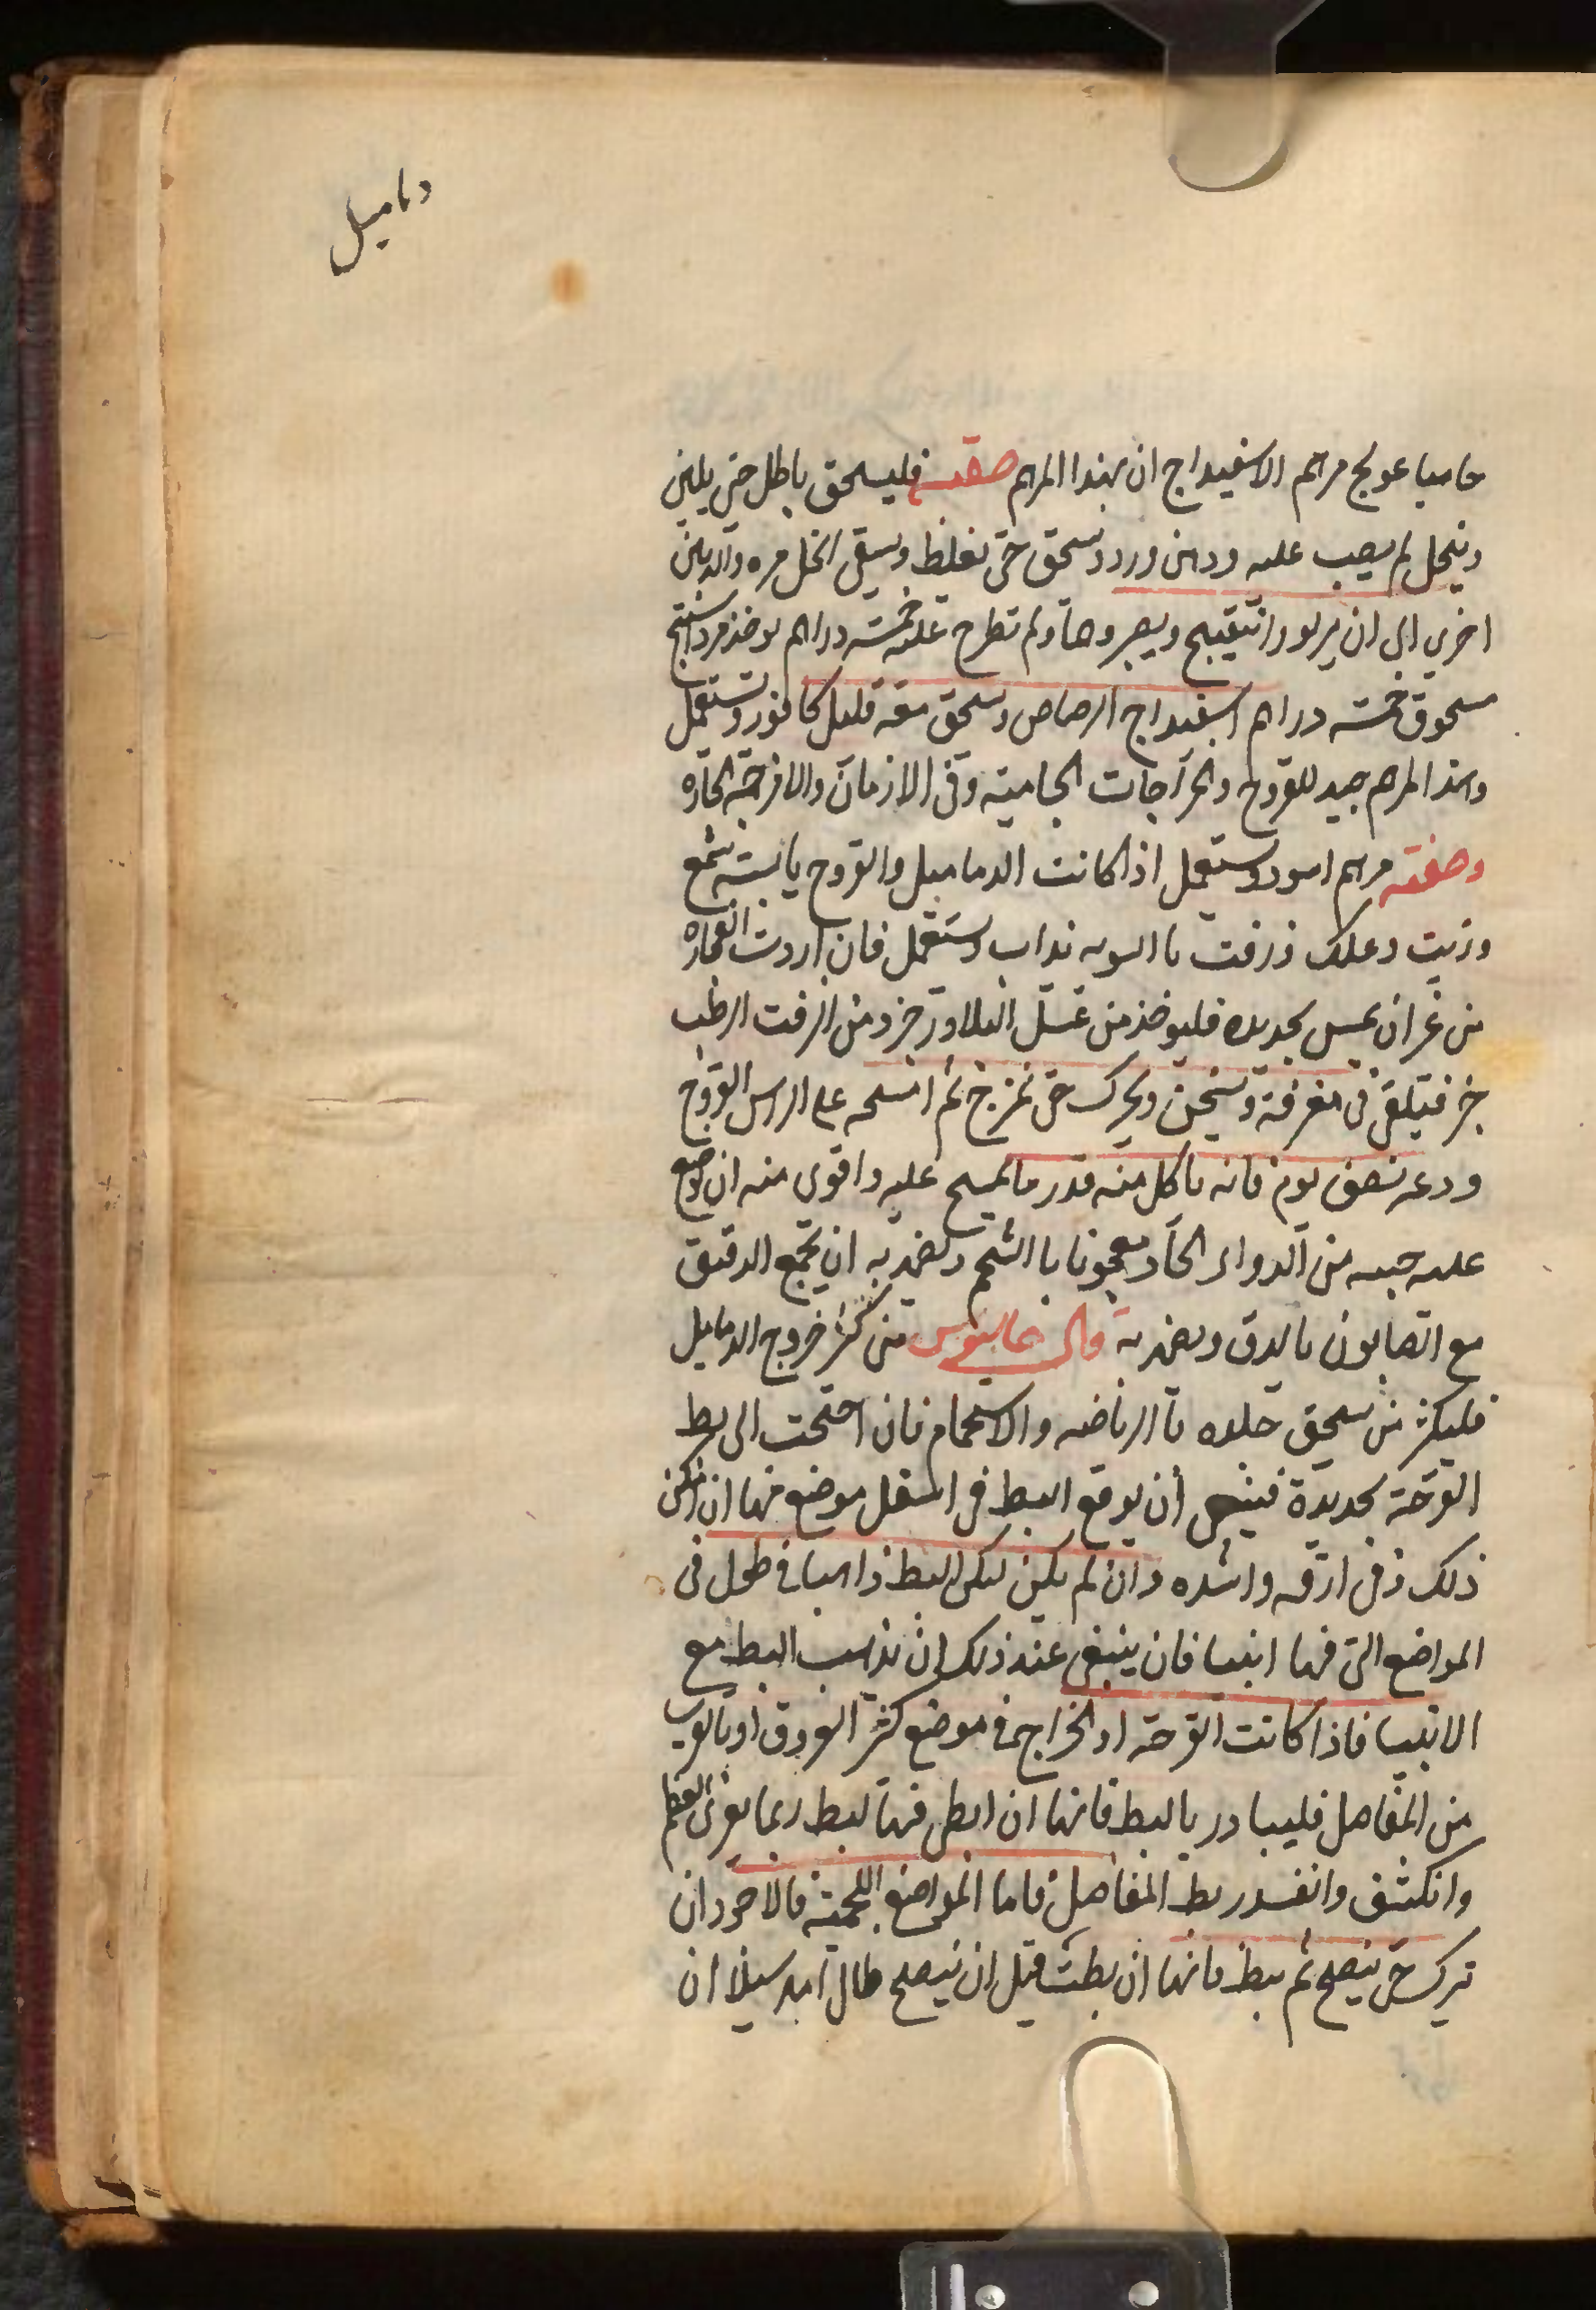 دماميل
حاميا عولج مرهم الاسفيداج ان بهذا المرهم صفته فليسحق باطل حتى يلين
وينحل ثم يصب عليه ودهن ورد ويسحق حتى يغلظ ويسقى الخل مره والدهن
اخرى الى ان يربو وا ويصير وها ثم تطرح عليه خمسه دراهم يوخذ مرداسنج
مسحوق خمسه دراهم اسفيداج الرصاص ويسحق معه قليل كافور ويستعمل
وهذا المرهم جيد للقروح والخراجات الحاميه وفى الازمان والامزجه الحاره
وصفته مرهم اسود ويستعمل اذا كانت الدماميل والقروح يابسه شمع
وزيت وعلك وزفت بالسويه يذاب ويستعمل فان اردت انفجاره
من غير ان يمس بحديده فليوخذ من عسل البلادر جزو من الزفت الرطب
جز فيلقى فى مغرفة ويسخن ويحرك حتى يمزج ثم امسحه على الراس القروح
ودعه نصف يوم فانه ياكل منه قدر ما يمسح عليه واقوى منه ان يوضع
عليه حبيه من الدواء الحاد معجونا باالشحم ويضمد به ان يجمع الدقيق
مع الصابون بالدق ويضمد به قال جالينوس من كثر خروج الدماميل
فليكثر من سحق جلده باالرياضه والاستحمام فان احتجت الى بط
القرحة بحديدة فينبغى أن يوقع البط فى اسفل موضع فيها ان امكن
ذلك وفى ارقه واشده وان لم يكن ليكن البط ذاهبا فى طول فى
المواضع التى فيها انبسا فان ينبغى عند ذلك ان يذهب البط مع
الانبسا فاذا كانت القرحة او الخراج فى موضع كثير العروق او بالقرب
من المفاصل فليبادر بالبط فانها ان ابطى فيها لبط ربما يعرى العظم
وانكشف وانفسد ربط المفاصل فاما المواضع اللحميه فالاجود ان
تترك حتى ينضج ثم يبط فانها ان بطت قبل ان ينضج طال امد سيلان